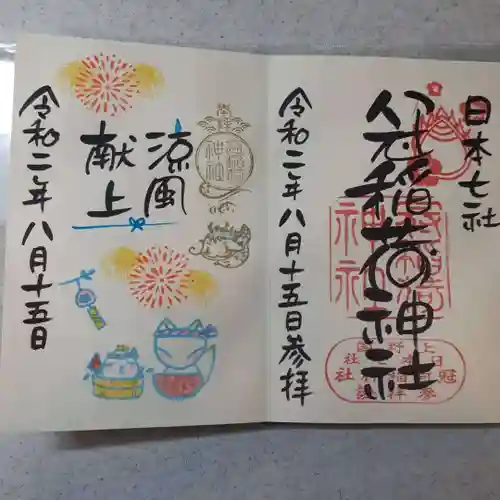 日本七社
冠稲荷神社
令和二年八月十五日参拝
涼風
献上
令和二年八月十五日